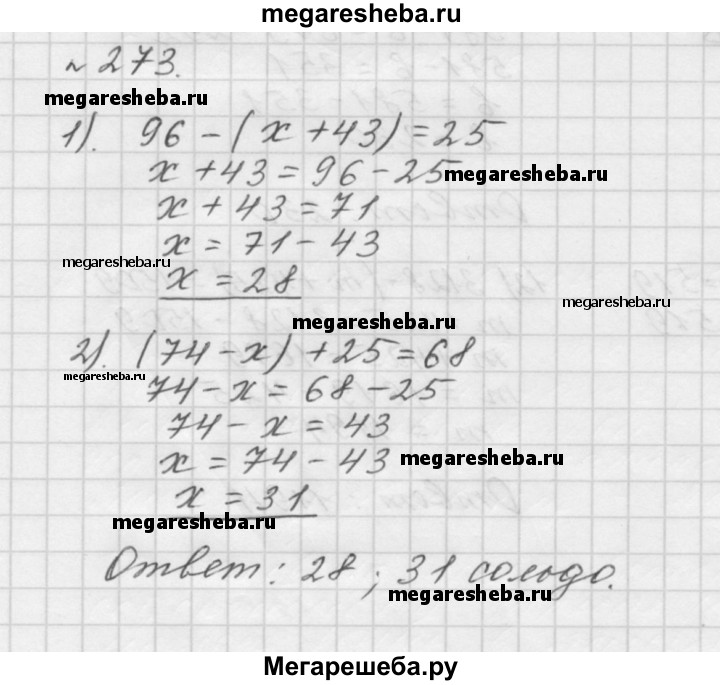 megaresheba.ru
№ 273.
megaresheba.ru
1). 96 - (x + 43) = 25
x + 43 = 96 - 25 megaresheba.ru
x + 43 = 71
x = 71 - 43
megaresheba.ru
x = 28
megaresheba.ru
megaresheba.ru
2). (74 - x) + 25 = 68
megaresheba.ru
74 - x = 68 - 25
74 - x = 43
x = 74 - 43 megaresheba.ru
x = 31
megaresheba.ru
Ответ: 28 ; 31 сольдо.
megaresheba.ru
Мегарешеба.ру